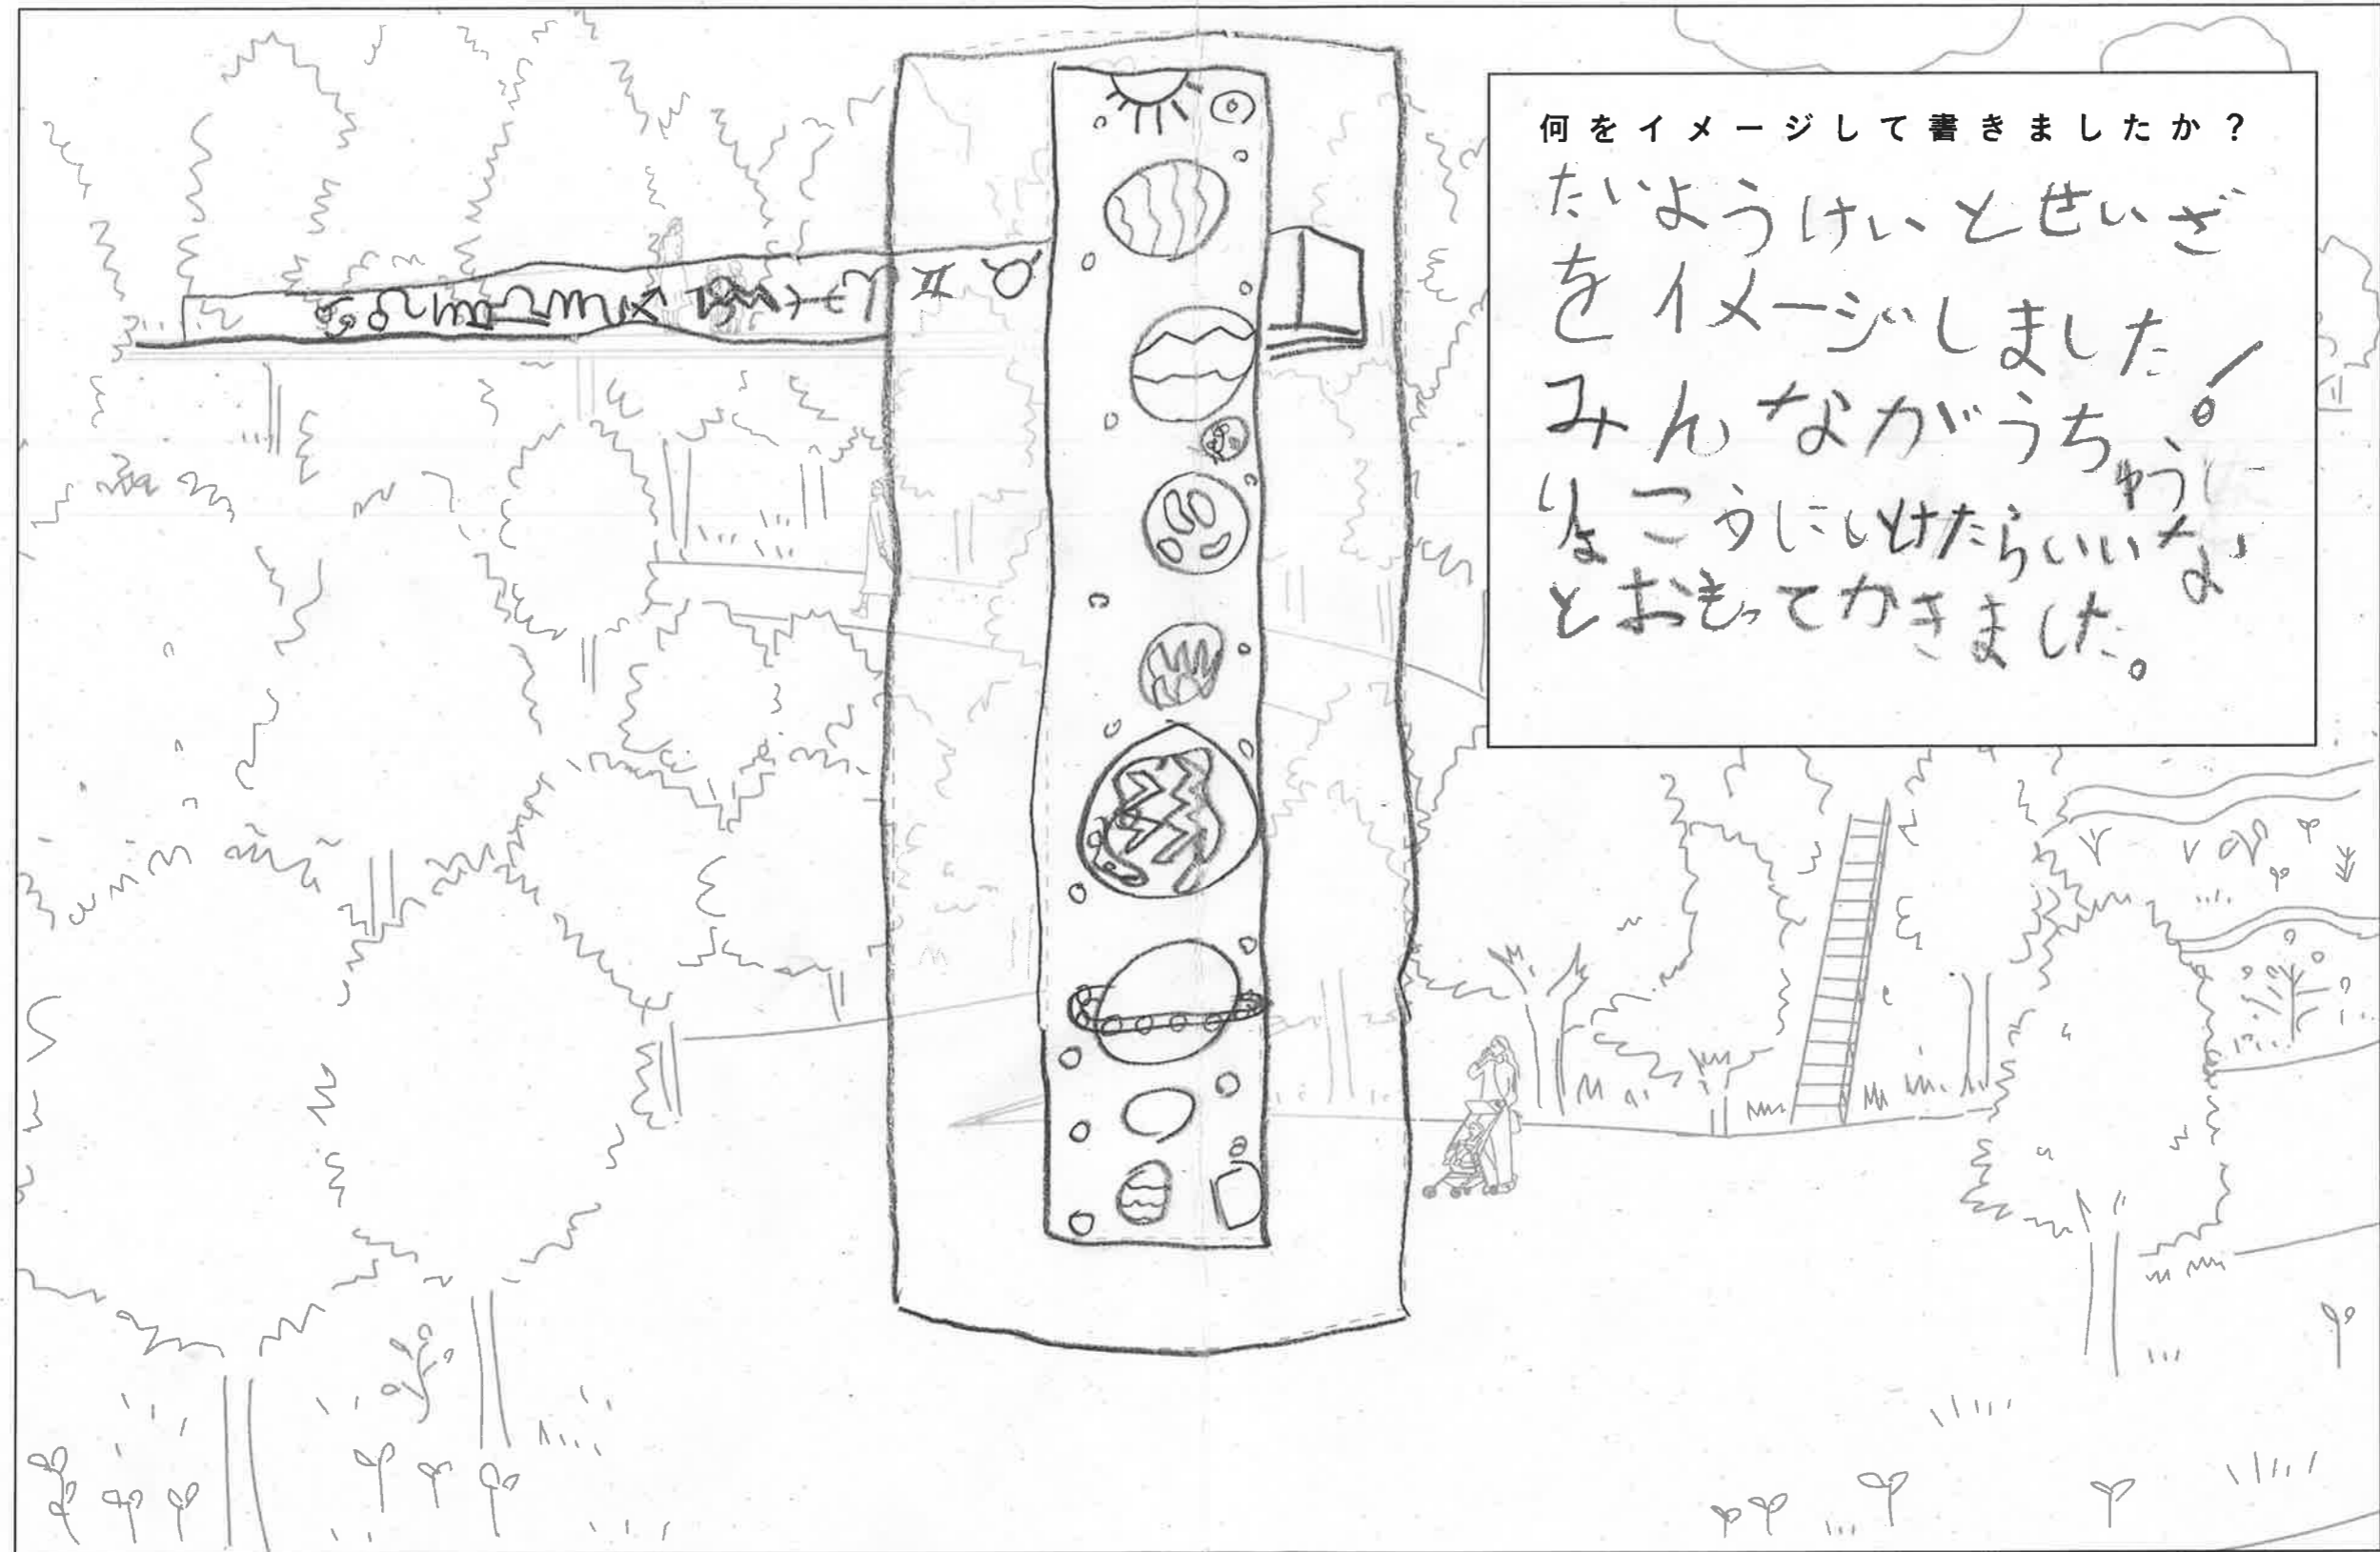 何をイメージして書きましたか？
たいようけいとせいざ
をイメージしました！
みんながうちゅうに
りょこうにいけたらいいな
とおもってかきました。
♋♌♍♎♏♐♑♒♓♈♊♉